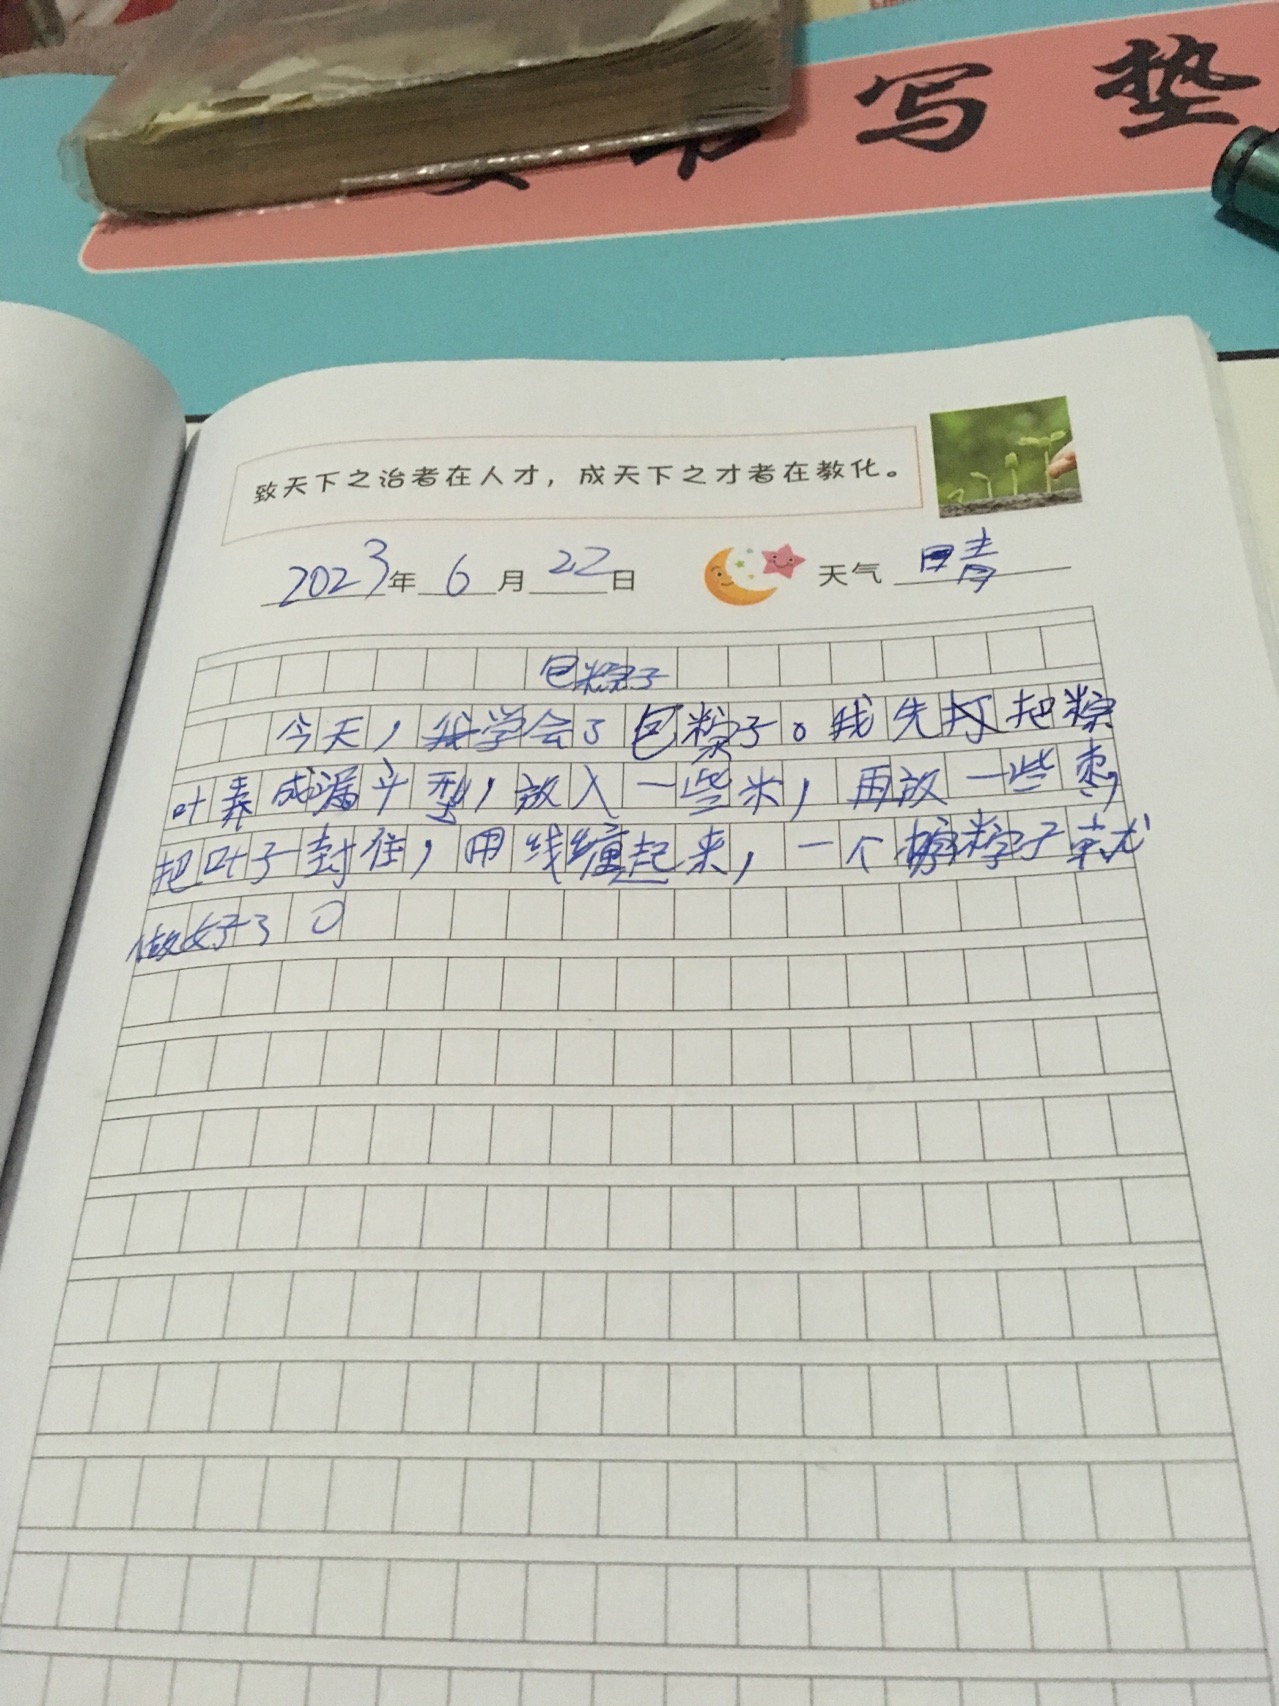 写垫
致天下之治者在人才，成天下之才者在教化。
2023年 6月 22日 天气 晴
包粽子
今天，我学会了包粽子。我先把粽
叶弄成漏斗型，放入一些米，再放一些枣，
把叶子封住，用线缠起来，一个粽子就
做好了。